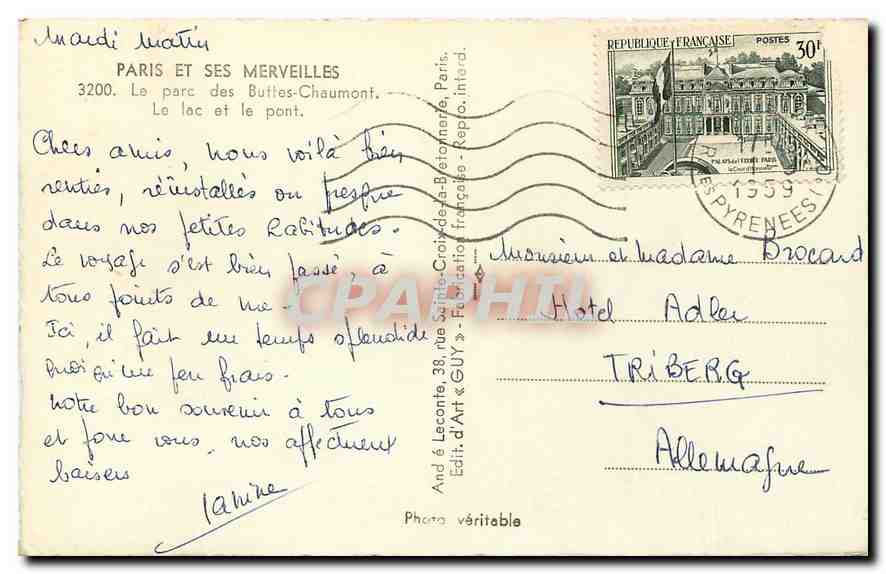 Mardi Matin
PARIS ET SES MERVEILLES
3200. Le parc des Buttes-Chaumont.
Le lac et le pont.
Chers amis, nous voilà bien
rentrés, réinstallés ou presque
dans nos petites habitudes.
Le voyage s'est bien passé, à
tous points de vue.
Ici, il fait un temps splendide
quoiqu'un peu frais.
Notre bon souvenir à tous
et pour vous, nos affectueux
baisers
Janine
And é Leconte, 38, rue Sainte-Croix-de-la-Bretonnerie, Paris.
Edit. d'Art «GUY» - Fabrication française - Repro. interd.
Photo véritable
REPUBLIQUE FRANÇAISE POSTES 30F
PALAIS de l'ELYSÉE PARIS
1959
PYRENEES
Monsieur et Madame Brocard
Hotel Adler
TRIBERG
Allemagne
CPAPHIL